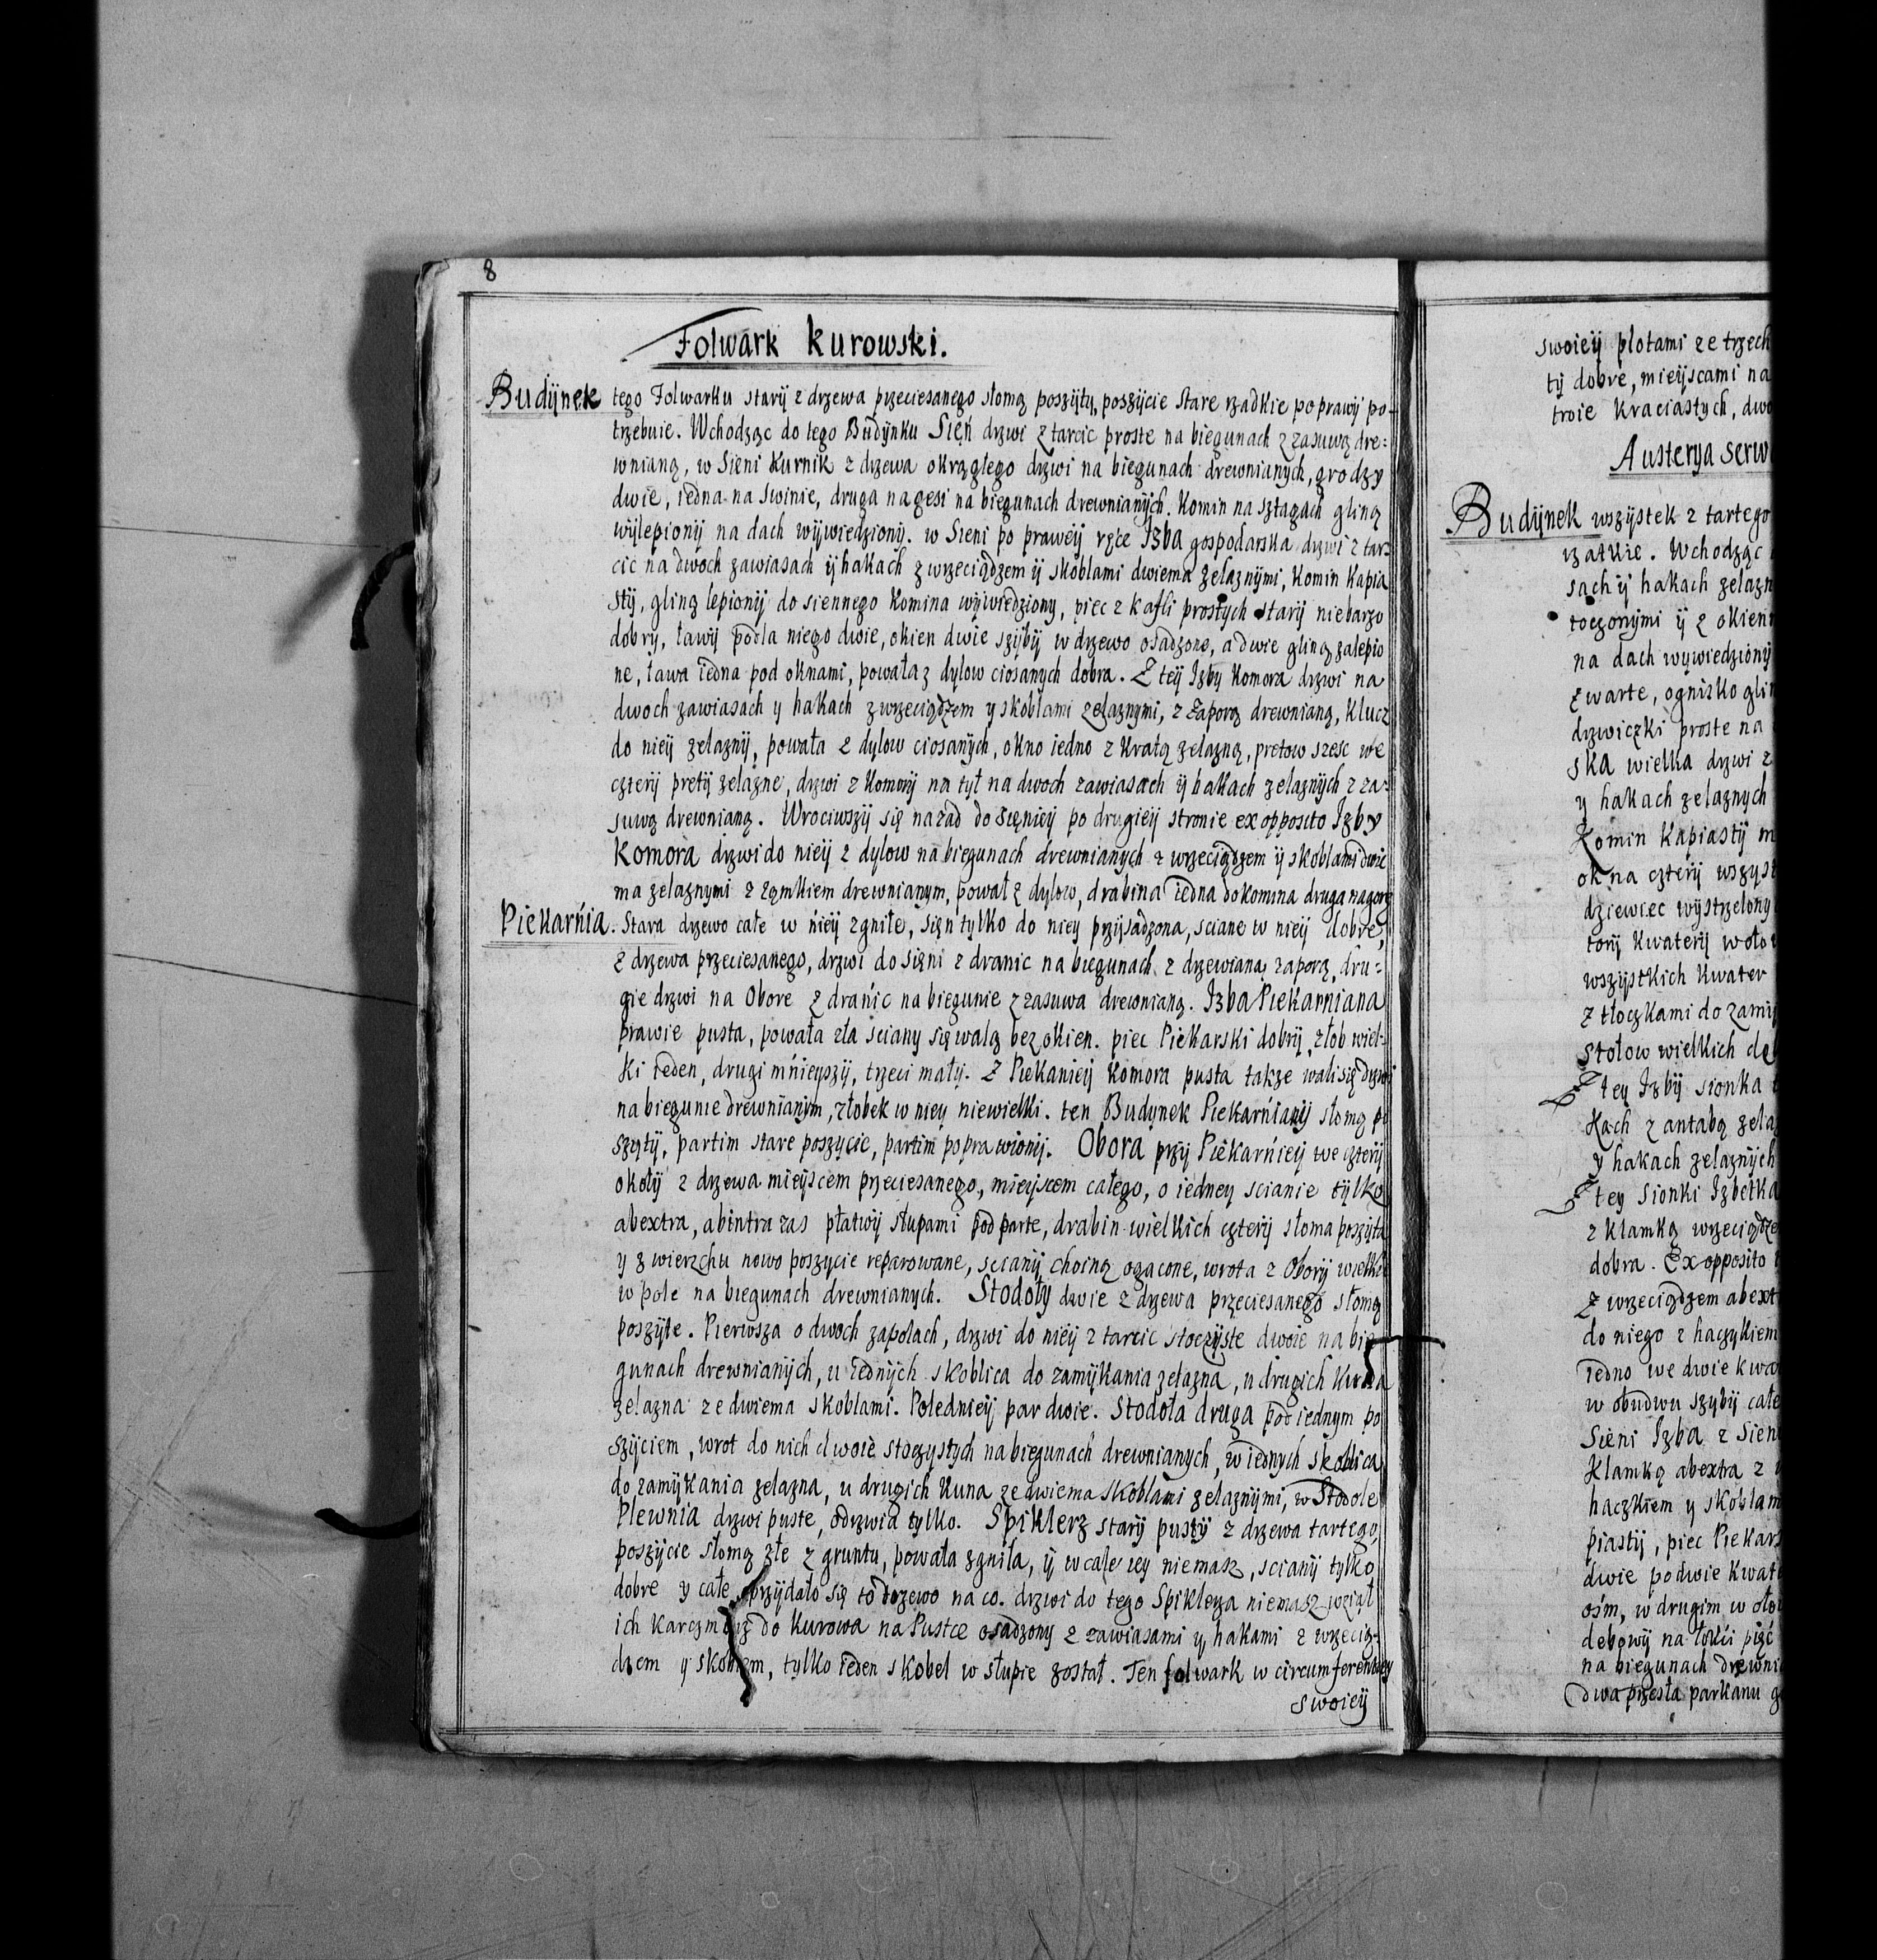 8
Folwark kurowski.
Budÿnek tego Folwarku starÿ z drzewa przeciesanego słomą poszÿtÿ, poszÿcie stare rzadkie poprawÿ po-
trzebuie. Wchodząc do tego Budÿnku Sień drzwi z tarcic proste na biegunach z zasuwą dre=
wnianą, w Sieni kurnik z drzewa okrągłego drzwi na biegunach drewnianych, grodzy
dwie, iedna na swinie, druga na gęsi na biegunach drewnianÿch. Komin na sztagach gliną
wÿlepionÿ na dach wÿwiedzionÿ. w Sieni po praweÿ ręce Izba gospodarska drzwi z tar=
cic na dwoch zawiasach ÿ hakach z wrzeciądzem ÿ skoblami dwiema zelaznÿmi, Komin kapia
stÿ, gliną lepionÿ do siennego Komina wÿwiedziony, piec z kafli prostych starÿ niebarzo
dobry, ławÿ podla niego dwie, okien dwie szÿbÿ w drzewo osadzone, a dwie gliną zalepio
ne, ława iedna pod oknami, powała z dylow ciosanych dobra. Z teÿ Izby Komora drzwi na
dwoch zawiasach y hakach z wrzeciądzem y skoblami zelaznymi, z zaporą drewnianą, klucz
do nieÿ zelaznÿ, powała z dylow ciosanÿch, okno iedno z kratą zelazną, pretow szesc we
czterÿ pretÿ zelazne, drzwi z Komorÿ na tył na dwoch zawiasach ÿ hakach zelaznÿch z za=
suwą drewnianą. Wrociwszÿ się nazad do Sięnieÿ po drugieÿ stronie ex opposito Izby
Komora drzwi do nieÿ z dylow na biegunach drewnianych z wrzeciądzem ÿ skoblami dwie
ma zelaznymi z zamkiem drewnianym, pował z dylow, drabina iedna do komina druga na gorę
Piekarńia. Stara drzewo całe w nieÿ zgniłe, sięn tylko do niey przÿsadzona, sciane w nieÿ dobre,
z drzewa przeciesanego, drzwi do Sięni z dranic na biegunach z drzewianą zaporą, dru=
gie drzwi na Obore z dranic na biegunie z zasuwa drewnianą. Izba Piekarniana
prawie pusta, powała zła sciany się walą bez okien. piec Piekarski dobrÿ, złob wiel-
ki ieden, drugi mńieyszÿ, trzeci małÿ. Z Piekanieÿ Komora pusta takze wali się drzwi
na biegunie drewnianÿm, złobek w nieÿ niewielki. ten Budynek Piekarńianÿ słomą po
szÿtÿ, partim stare poszycie, partim poprawionÿ. Obora przÿ Piekarńieÿ we czterÿ
okołÿ z drzewa mieÿscem przeciesanego, mieyscem całego, o iedney scianie tÿlko
abextra, abintra zas płatwÿ słupami podparte, drabin wielkich czterÿ słoma poszÿta
y z wierzchu nowo poszycie reparowane, scianÿ choiną ogacone, wrota z Oborÿ wielkie
w pole na biegunach drewnianych. Stodoły dwie z drzewa przeciesanego słomą
poszÿte. Pierwsza o dwoch zapolach, drzwi do nieÿ z tarcic stoczÿste dwoie na bie
gunach drewnianÿch, u iednÿch skoblica do zamÿkania zelazna, u drugich kuna
zelazna ze dwiema skoblami. Polednieÿ par dwie. Stodoła druga pod iednym po
szÿciem, wrot do nich dwoie stoczystych na biegunach drewnianych, w iednych skoblica
do zamÿkania zelazna, u drugich kuna ze dwiema skoblami zelaznÿmi, w Stodole
Plewnia drzwi puste, odrzwia tylko. Spiklerz starÿ pustÿ z drzewa tartego,
poszÿcie słomą złe z gruntu, powała zgniła, ÿ wcale iey niemasz, scianÿ tylko
dobre y całe przÿdało się to drzewo na co. drzwi do tego Spiklerza niemasz wziął
ich karczmarz do Kurowa na Pustce osadzony z zawiasami y hakami z wrzecią-
dzem y skoblem, tylko ieden skobel w słupie został. Ten folwark w circumferencyey
swoieÿ
swoieÿ płotami ze trzech
tÿ dobre, mieÿscami na
troie kraciastych, dwo
Austerya serw
Budÿnek wszÿstek z tartego
rzatkie. Wchodząc
sach ÿ hakach zelazn
toczonymi ÿ z okien
na dach wÿwiedzionÿ
zwarte, ognisko gli
drzwiczki proste na
ska wielka drzwi z
y hakach zelaznych
Komin Kapiastÿ m
okna czterÿ wszys
dziewiec wÿstrzelony
torÿ kwaterÿ w oło
wszÿstkich kwater
z tłoczkami do zamÿ
stołow wielkich dę
Z tey Izbÿ sionka
kach z antabą zela
y hakach zelaznÿch
Z tey Sionki Izbetka
z klamką wrzeciądze
dobra. Ex opposito
z wrzeciądzem abext
do niego z haczÿkiem
iedno we dwie kwa
w obudwu szybÿ całe
Sieni Izba z Sien
klamką abextra z
haczkiem y skoblam
piastÿ, piec Piekars
dwie po dwie kwat
ośm, w drugim w oło
debowÿ na łokci pięć
na biegunach drewni
dwa przesła parkanu